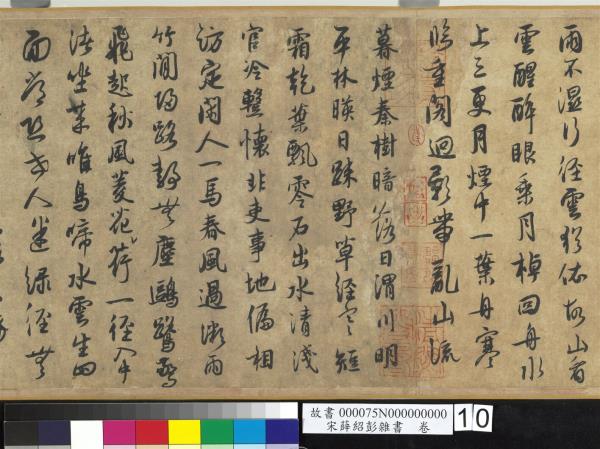 雨不濕行徑雲猶依故山看
雲醒醉眼乘月棹回舟水
上三更月煙中一葉舟寒
臨重閣迥影帶亂山流
暮煙秦樹暗落日渭川明
平林映日疎野草經寒短
霜乾葉飄零石出水清淺
官冷整懷非吏事地偏相
訪定閑人一馬春風過微雨
竹間歸路靜無塵鷗鷺驚
飛起秋風菱花荷一徑
坐來唯鳥啼水雲生四
面常恐世人迷綠徑無
故書 000075N000000000
宋薛紹彭雜書 卷
10